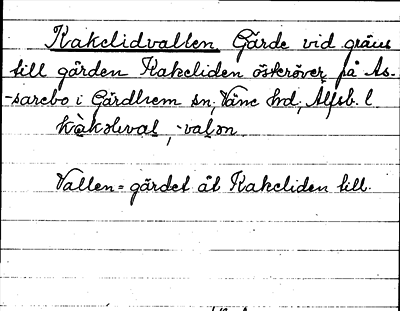 Kakelidvallen Gärde vid gräns
till gården Kakeliden österöver på As-
-sarebo i Gärdhem sn, Väne hd, Älfsb. l.
Vallen = gärdet åt Kakeliden till.